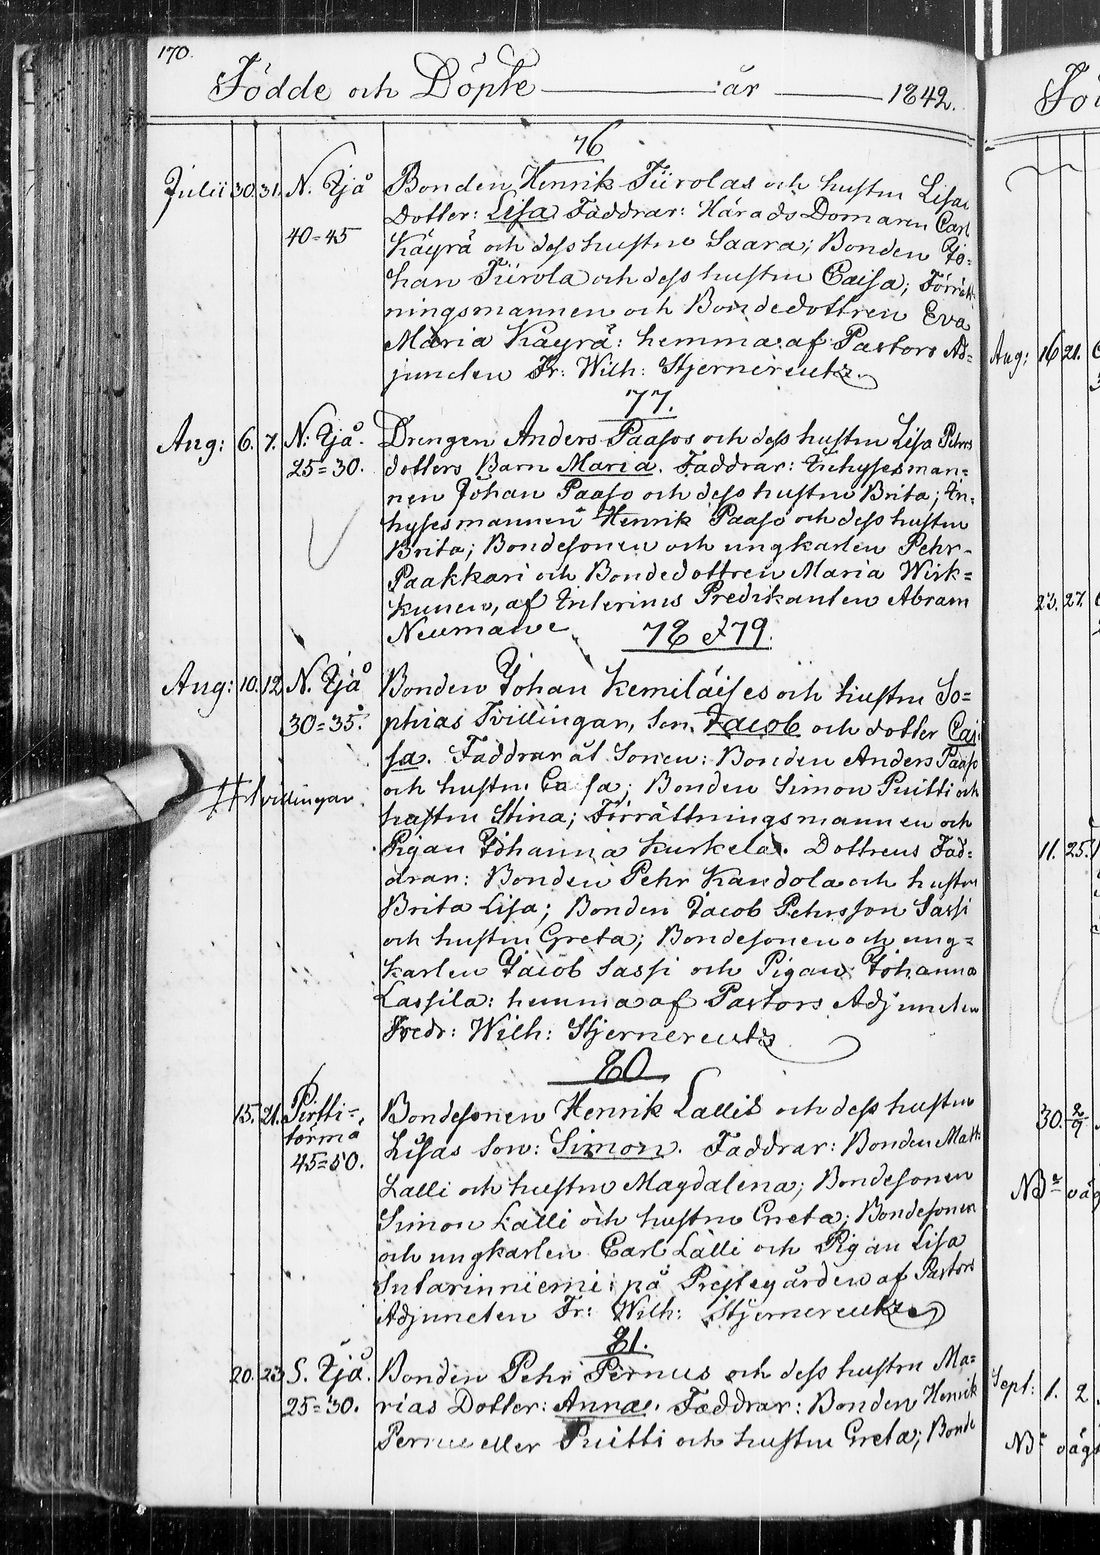 170.
Födde och Döpte ——— :år ——— 1842.
76
Julii 30. 31. N. Ijå Bonden Henrik Tiirolas och hustru Lisas
Dotter: Lisa. Faddrar: Härads Domaren Carl
40=45 Käyrä och dess hustru Saara; Bonden Jo=
han Tiirola och dess hustru Caisa; Förrätt=
ningsmannen och Bondedottren Eva
Maria Käyrä: hemma af Pastors Ad=
juncten Fr: Wilh: Stjerncreutz.
77.
Aug: 6. 7. N: Ijå. Drengen Anders Paasos och dess hustru Lisa Pehrs
25=30. dotters Barn Maria. Faddrar: Inhysesman=
nen Johan Paaso och dess hustru Brita; In=
hysesmannen Henrik Paaso och dess hustru
Brita; Bondesonen och ungkarlen Pehr
Paakkari och Bondedottren Maria Wirk=
kunen, af Interims Predikanten Abram
Neumann
78 & 79.
Aug: 10. 12. N. Ijå Bonden Johan Kemiläises och hustru So=
30=35. phias Tvillingar, Son Jacob och dotter Cai
sa. Faddrar åt Sonen: Bonden Anders Paaso
# tvillingar. och hustru Caisa; Bonden Simon Puitti och
hustru Stina; Förrättningsmannen och
Pigan Johanna Kurkela. Dottrens Fad=
drar: Bonden Pehr Kandola och hustru
Brita Lisa; Bonden Jacob Pehrsson Sassi
och hustru Greta; Bondesonen och ung=
karlen Jacob Sassi och Pigan Johanna
Lassila: hemma af Pastors Adjuncten
Fredr: Wilh: Stjerncreutz
80.
15. 21. Pirtti= Bondesonen Henrik Lallis och dess hustru
törmä Lisas Son: Simon. Faddrar: Bonden Matt:
45=50. Lalli och hustru Magdalena; Bondesonen
Simon Lalli och hustru Greta; Bondesonen
och ungkarlen Carl Lalli och Pigan Lisa
Sutarinniemi: på Prestegården af Pastors
Adjuncten Fr: Wilh: Stjerncreutz.
81.
20. 23. S. Ijå. Bonden Pehr Pernus och dess hustru Ma=
25=30. rias Dotter: Anna. Faddrar: Bonden Henrik
Pernu eller Puitti och hustru Greta; Bonde
Aug: 16 21.
23. 27.
11. 25.
30. 2/9
NB
Sept: 1. 2
NB